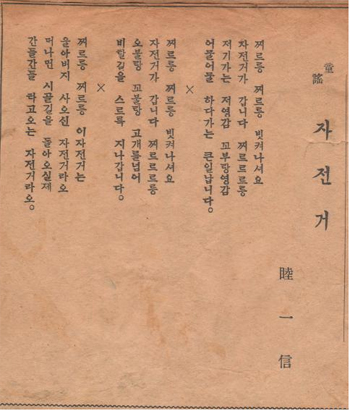 童謠
자전거
睦一信
찌르릉 찌르릉 빗켜나셔요
자전거가 갑니다 찌르르르릉
저기가는 저영감 꼬부랑영감
어물어물 하다가는 큰일납니다。
×
찌르릉 찌르릉 빗켜나셔요
자전거가 갑니다 찌르르르릉
오불랑 꼬불랑 고개를넘어
비탈길을 스르륵 지나갑니다。
×
찌르릉 찌르릉 이자전거는
울아버지 사오신 자전거라오
머나먼 시골길을 돌아오실제
간들간들 타고오는 자전거라오。